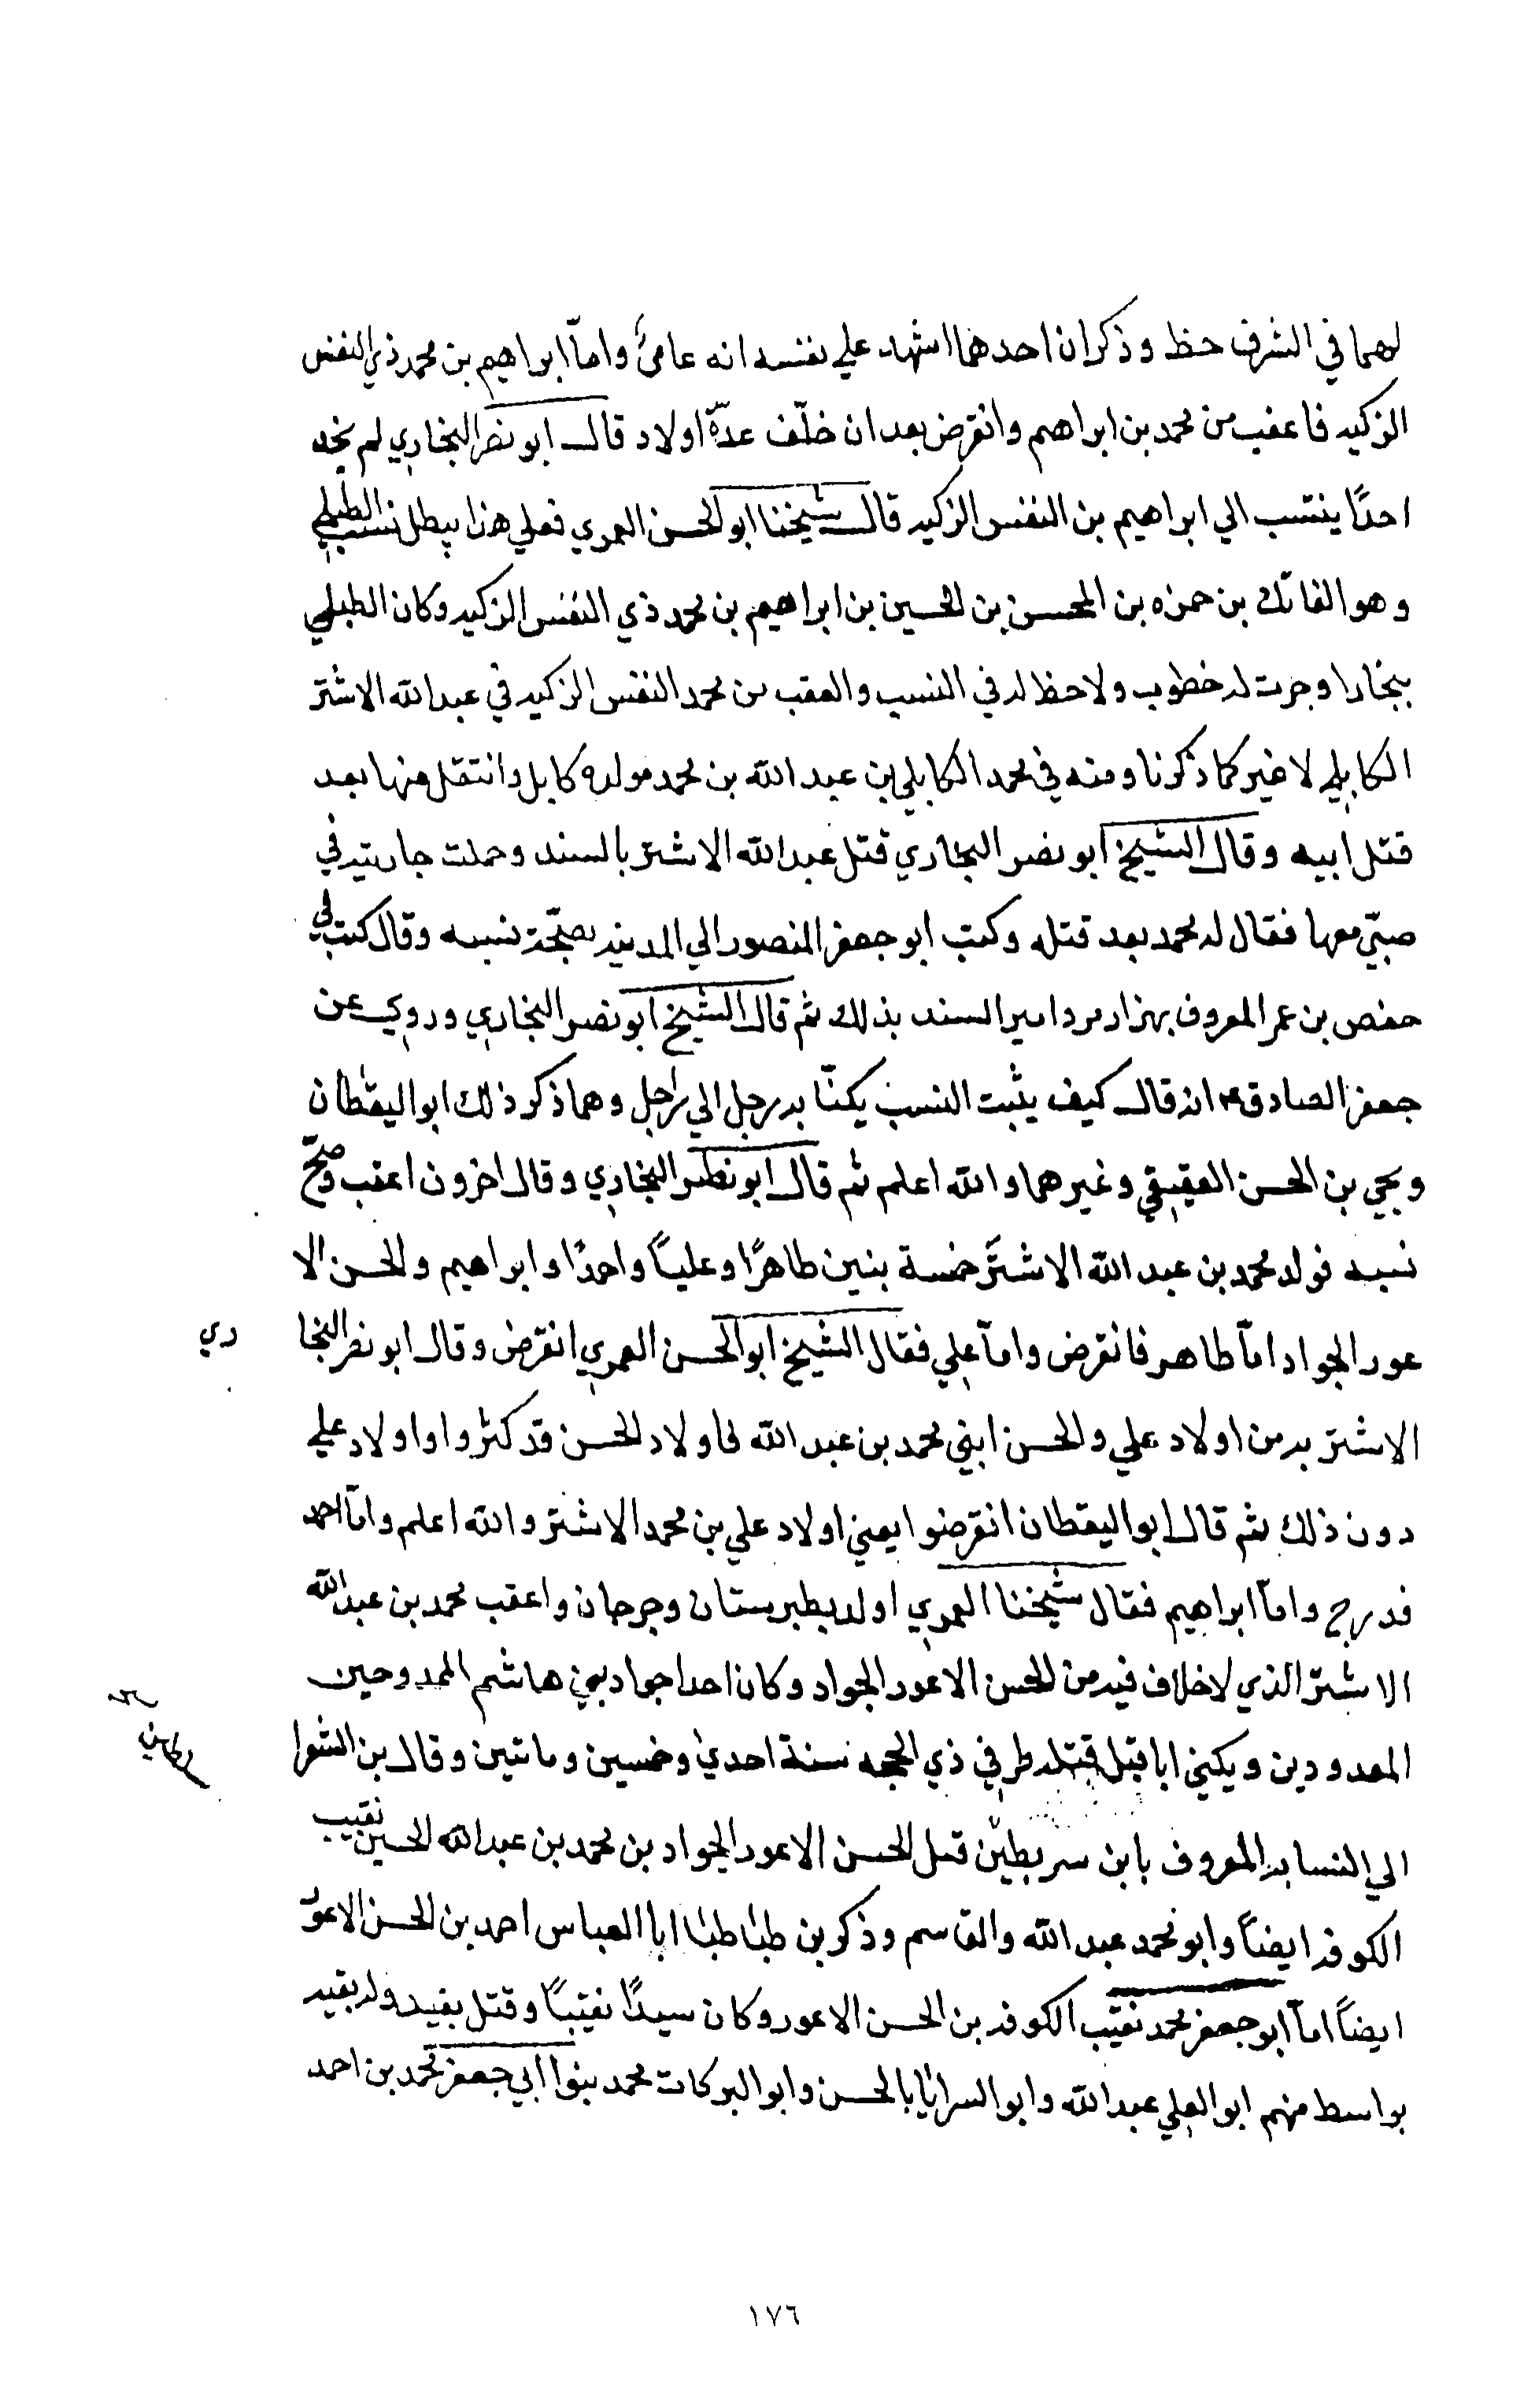 لهما في الشرف حظ وذكر ان احدهما اشهد علي نفسه انه عاميّ واماّ ابراهيم بن محمد ذي النفس
الزكيه فاعقب من محمد بن ابراهيم وانقرض بعد ان خلّف عدّة اولاد قال ابو نصر البخاري لم نجد
احدًا ينتسب الي ابراهيم بن النفس الزكيه قال شيخنا ابو الحسن العمري فعلي هذا يبطل نسب الطبلي
وهو الفاتك بن حمزه بن المحسن بن الحسين بن ابراهيم بن محمد ذي النفس الزكيه وكان الطبلي
ببخارا وجرت له خطوب ولا حظ له في النسب والعقب من محمد النفس الزكيه في عبد الله الاشتر
الكابلي لا غير كما ذكرنا ومنه في محمد الكابلي بن عبد الله بن محمد مولده كابل وانتقل منها بعد
قتل ابيه وقال الشيخ ابو نصر البخاري قتل عبد الله الاشتر بالسند وحملت جاريته في
صبّي معها فقال له محمد بعد قتله وكتب ابو جعفر المنصور الي المدينه بصحّة نسبه وقال كتب لي
حفص بن عمر المعروف بهزارمرد امير السند بذلك ثم قال الشيخ ابو نصر البخاري وروي عن
جعفر الصادق ع انه قال كيف يثبت النسب يكتّابه رجل الي رجل وهما ذكر ذلك ابو اليقظان
ويحي بن الحسن العقيقي وغيرهما والله اعلم ثم قال ابو نصر البخاري وقال اخرون اعقب وصحّ
نسبه فولد محمد بن عبد الله الاشتر خمسة بنين طاهرًا وعلياً واحمدًا وابراهيم والحسن الا
عور الجواد اماّ طاهر فانقرض واماّ علي فقال الشيخ ابو الحسن العمري انقرض وقال ابو نصر البخا ري
الاشتريه من اولاد علي والحسن ابني محمد بن عبد الله فاولاد الحسن قد كثروا واولاد علي
دون ذلك ثم قال ابو اليقظان انقرضوا يعني اولاد علي بن محمد الاشتر والله اعلم واماّ احمد
فدرج واماّ ابراهيم فقال شيخنا العمري اولد بطبرستان وجرجان واعقب محمد بن عبد الله
الاشترّ الذي لا خلاف فيه من الحسن الاعور الجواد وكان احد اجواد بني هاشم الممدوحين
المعدودين ويكني ابا قتله طي في ذي الحجه سنة احدي وخمسين وماتين وقال بن الشعرا
الي النسابه المعروف بابن سربطين قتل الحسن الاعور الجواد بن محمد بن عبد الله الحسين نقيب
الكوفه ايضاً وابو محمد عبد الله والقاسم وذكر بن طباطبا ابا العباس احمد بن الحسن الاعور
ايضاً اماّ ابو جعفر محمد نقيب الكوفه بن الحسن الاعور وكان سيدًا نقيبًا وقتل بفيد وله بقيه
بواسط منهم ابو العلي عبد الله وابو السرايا بالحسن وابو البركات محمد بنوا ابي جعفر محمد بن احمد
١٧٦